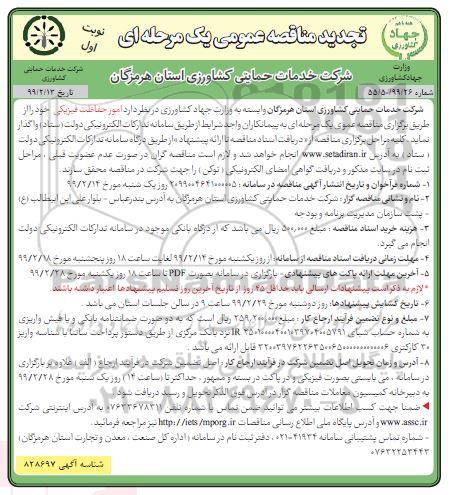 تجدید مناقصه عمومی یک مرحله ای
نوبت اول
شرکت خدمات حمایتی کشاورزی استان هرمزگان
جهاد کشاورزی
وزارت جهادکشاورزی
شرکت خدمات حمایتی کشاورزی
شماره ۵۵/۵۰/۹۹/۲۶
تاریخ ۹۹/۲/۱۳
شرکت خدمات حمایتی کشاورزی استان هرمزگان وابسته به وزارت جهاد کشاورزی در نظر دارد امور حفاظت فیزیکی خود را از
طریق برگزاری مناقصه عمومی یک مرحله ای به پیمانکاران واجد شرایط از طریق سامانه تدارکات الکترونیکی دولت (ستاد) واگذار
نماید. کلیه مراحل برگزاری مناقصه از دریافت اسناد مناقصه تا ارائه پیشنهاد از طریق درگاه سامانه تدارکات الکترونیکی دولت
( ستاد ) به آدرس www.setadiran.ir انجام خواهد شد و لازم است مناقصه گران در صورت عدم عضویت قبلی ، مراحل
ثبت نام در سایت مذکور و دریافت گواهی امضای الکترونیکی ( توکن ) را جهت شرکت در مناقصه محقق سازند.
۱- شماره فراخوان و تاریخ انتشار آگهی مناقصه در سامانه : ۲۰۹۹۰۰۴۶۴۱۰۰۰۰۰۵ روز یک شنبه مورخ ۹۹/۲/۱۴
۲- نام و نشانی مناقصه گزار : شرکت خدمات حمایتی کشاورزی استان هرمزگان به آدرس بندرعباس - بلوار علی ابن ابیطالب (ع)
- پشت سازمان مدیریت برنامه و بودجه
۳- هزینه خرید اسناد مناقصه : مبلغ ۵۰۰,۰۰۰ ریال می باشد که از درگاه بانکی موجود در سامانه تدارکات الکترونیکی دولت
انجام می گیرد.
۴- مهلت زمانی دریافت اسناد مناقصه از سامانه: از روز یکشنبه مورخ ۹۹/۲/۱۴ لغایت ساعت ۱۸ روز پنجشنبه مورخ ۹۹/۲/۱۸
۵- آخرین مهلت ارائه پاکت های پیشنهادی - بارگزاری در سامانه بصورت PDF تا ساعت ۱۸ روز یکشنبه مورخ ۹۹/۲/۲۸
* لازم به ذکر است پیشنهادات ارسالی باید حداقل ۴۵ روز از تاریخ آخرین روز تسلیم پیشنهادها اعتبار داشته باشند
۶- تاریخ گشایش پیشنهادها: روز دوشنبه مورخ ۹۹/۲/۲۹ ساعت ۹ در سالن جلسات استان می باشد.
۷- مبلغ و نوع تضمین فرآیند ارجاع کار : مبلغ ۲۵۹,۲۰۰,۰۰۰ ریال است که به دو صورت ضمانتنامه بانکی و یا فیش واریزی
به شماره حساب شبای
نزد بانک مرکزی از طریق دستور پرداخت ساتنا با شناسه واریز
۳۰ کارکتری
قابل ارائه می باشد.
۸- آدرس و زمان تحویل اصل تضمین شرکت در فرآیند ارجاع کار : اصل تضمین شرکت در فرآیند ارجاع ( الف ) علاوه بر بارگزاری
در سامانه ، می بایستی بصورت فیزیکی و در پاکت در بسته و ممهور ، حداکثر تا (ساعت ۱۴) روز یک شنبه مورخ ۹۹/۲/۲۸
به دبیرخانه کمیسیون معاملات مناقصه گزار در آدرس فوق الذکر تحویل و رسید دریافت شود.
ضمنا جهت کسب اطلاعات بیشتر می توانید ضمن تماس با شماره تلفن ۰۷۶۳۳۶۷۸۳۱۱ به آدرس اینترنتی شرکت
www.assc.ir و آدرس پایگاه ملی اطلاع رسانی مناقصات http://iets/mporg.ir نیز مراجعه فرمائید.
- شماره تماس پشتیبانی سامانه ۴۱۹۳۴-۰۲۱ ، دفتر ثبت نام در سامانه ( اداره کل صنعت ، معدن و تجارت استان هرمزگان)
۰۷۶۳۲۲۵۳۴۴۳
شناسه آگهی ۸۲۸۶۹۷